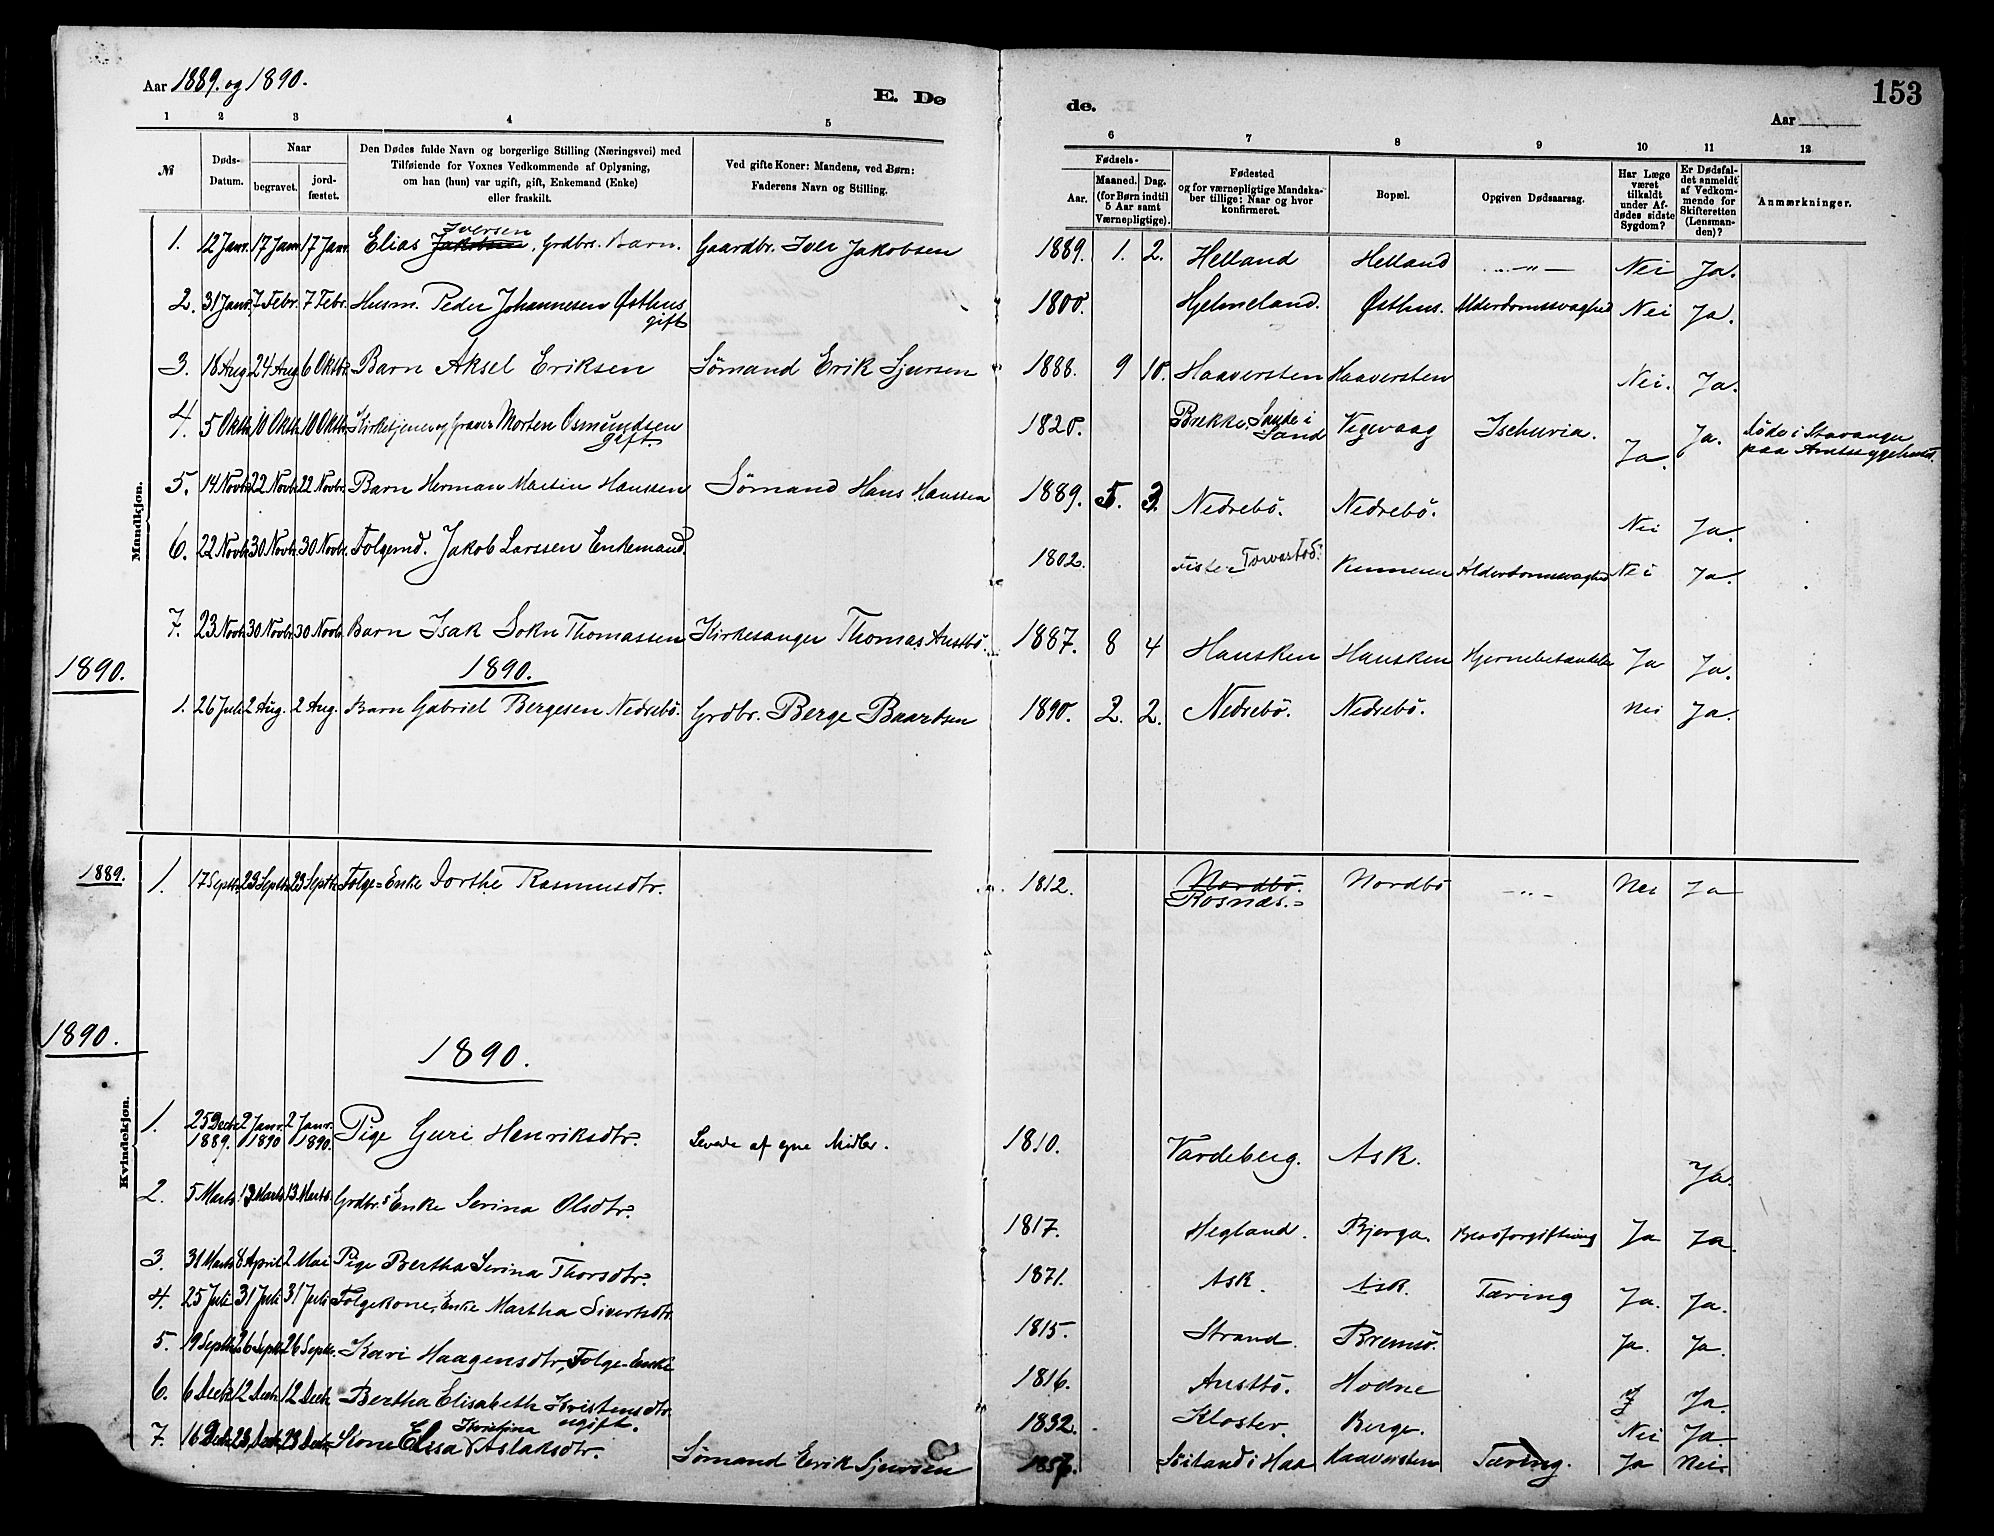 Aar 1889. og 1890.
E. Dø
de.
153
Aar
1 2 3 4 5 6 7 8 9 10 11 12
№
Døds-Datum.
Naar
begravet.
jord-fæstet.
Den Dødes fulde Navn og borgerlige Stilling (Næringsvei) med
Tilføiende for Voxnes Vedkommende af Oplysning,
om han (hun) var ugift, gift, Enkemand (Enke)
eller fraskilt.
Ved gifte Koner: Mandens, ved Børn:
Faderens Navn og Stilling.
Fødsels-
Aar.
Maaned. Dag.
(for Børn indtil
5 Aar samt
Værnepligtige).
Fødested
og for værnepligtige Mandska-
ber tillige: Naar og hvor
konfirmeret.
Bopæl.
Opgiven Dødsaarsag.
Har Læge
været
tilkaldt
under Af-
dødes sidste
Sygdom?
Er Dødsfal-
det anmeldt
af Vedkom-
mende for
Skifteretten
(Lensman-
den)?
Anmærkninger.
Mandkjøn.
1. 12 Janr. 17 Janr. 17 Janr. Elias Jakobsen Iversen, Grdbrs. Barn. Gaardbr. Iver Jakobsen 1889. 1. 2. Helland Helland — „ — Nei Ja.
2. 31 Janr. 7 Febr. 7 Febr. Husm. Peder Johannesen Østhus gift 1800. Hjelmeland. Østhus. Alderdomssvaghed Nei Ja.
3. 18 Aug 24 Aug 6 Oktbr. Barn Aksel Eriksen Sømand Erik Sjursen 1888. 9 10. Haaversten Haaversten Nei. Ja.
4. 5 Oktb. 10 Oktb. 10 Oktb. Kirketjener og Graver Morten Osmundsen gift 1820. Brekke, Sande i Sand Vegevaag Ischuria. Ja. Ja. døde i Stavanger paa Amtssygehuset.
5. 14 Novbr. 22 Novbr. 22 Novbr. Barn Herman Martin Hanssen Sømand Hans Hanssen 1889. 5. 3. Nedrebö. Nedrebö. Nei Ja.
6. 22 Novbr. 30 Novbr. 30 Novbr. Folgemd. Jakob Larssen Enkemand. 1802. Alderdomssvaghed Nei Ja.
7. 23 Novbr. 30 Novbr. 30 Novbr. Barn Isak Thomassen Kirkesanger Thomas Austbö. 1887. 8 4 Hausken Hausken Hjernebetændelse Ja Ja.
1890.
1890.
1. 26 Juli 2 Aug. 2 Aug. Barn Gabriel Bergesen Nedrebö. Grdbr. Berge Baardsen 1890. 2. 2. Nedrebö. Nedrebö. Nei Ja.
Kvindekjøn.
1889. 1. 17 Septbr. 23 Septbr. 23 Septbr. Folge-Enke Dorthe Rasmusdtr. 1812. Nordbö. Rosnæs. Nordbö — „ — Nei Ja
1890.
1890.
1. 25 Decbr. 1889. 2 Janr. 1890 2 Janr. 1890. Pige Guri Henriksdtr. Levede af egne Midler. 1810. Vardeberg. Ask. Ja.
2. 5 Marts 13 Marts 13 Marts. Grdbr.s Enke Serina Olsdtr. 1817. Hegland. Bjerga. Blodforgiftning Ja Ja.
3. 31 Marts 8 April 2 Mai Pige Bertha Serina Thorsdtr. 1871. Ask. Ask. Tæring Ja. Ja.
4. 25 Juli 31 Juli 31 Juli Folgekone, Enke Martha Sivertsdtr. 1815. Strand. Bremsö. Ja. Ja.
5. 19 Septbr. 26 Septbr. 26 Septbr. Kari Haagensdtr, Folge-Enke 1816. Austbö. Hodne J Ja.
6. 6 Decbr. 12 Decbr. 12 Decbr. Bertha Elisabeth Kristensdtr. ugift. 1832. Kloster. Berge. Nei Ja.
7. 16 Decbr. 23 Decbr. 23 Decbr. Kone Elisa Kristina Asladsdtr. Sømand Erik Sjursen 1857. Söiland i Haa Haaversten Tæring. Ja Nei.